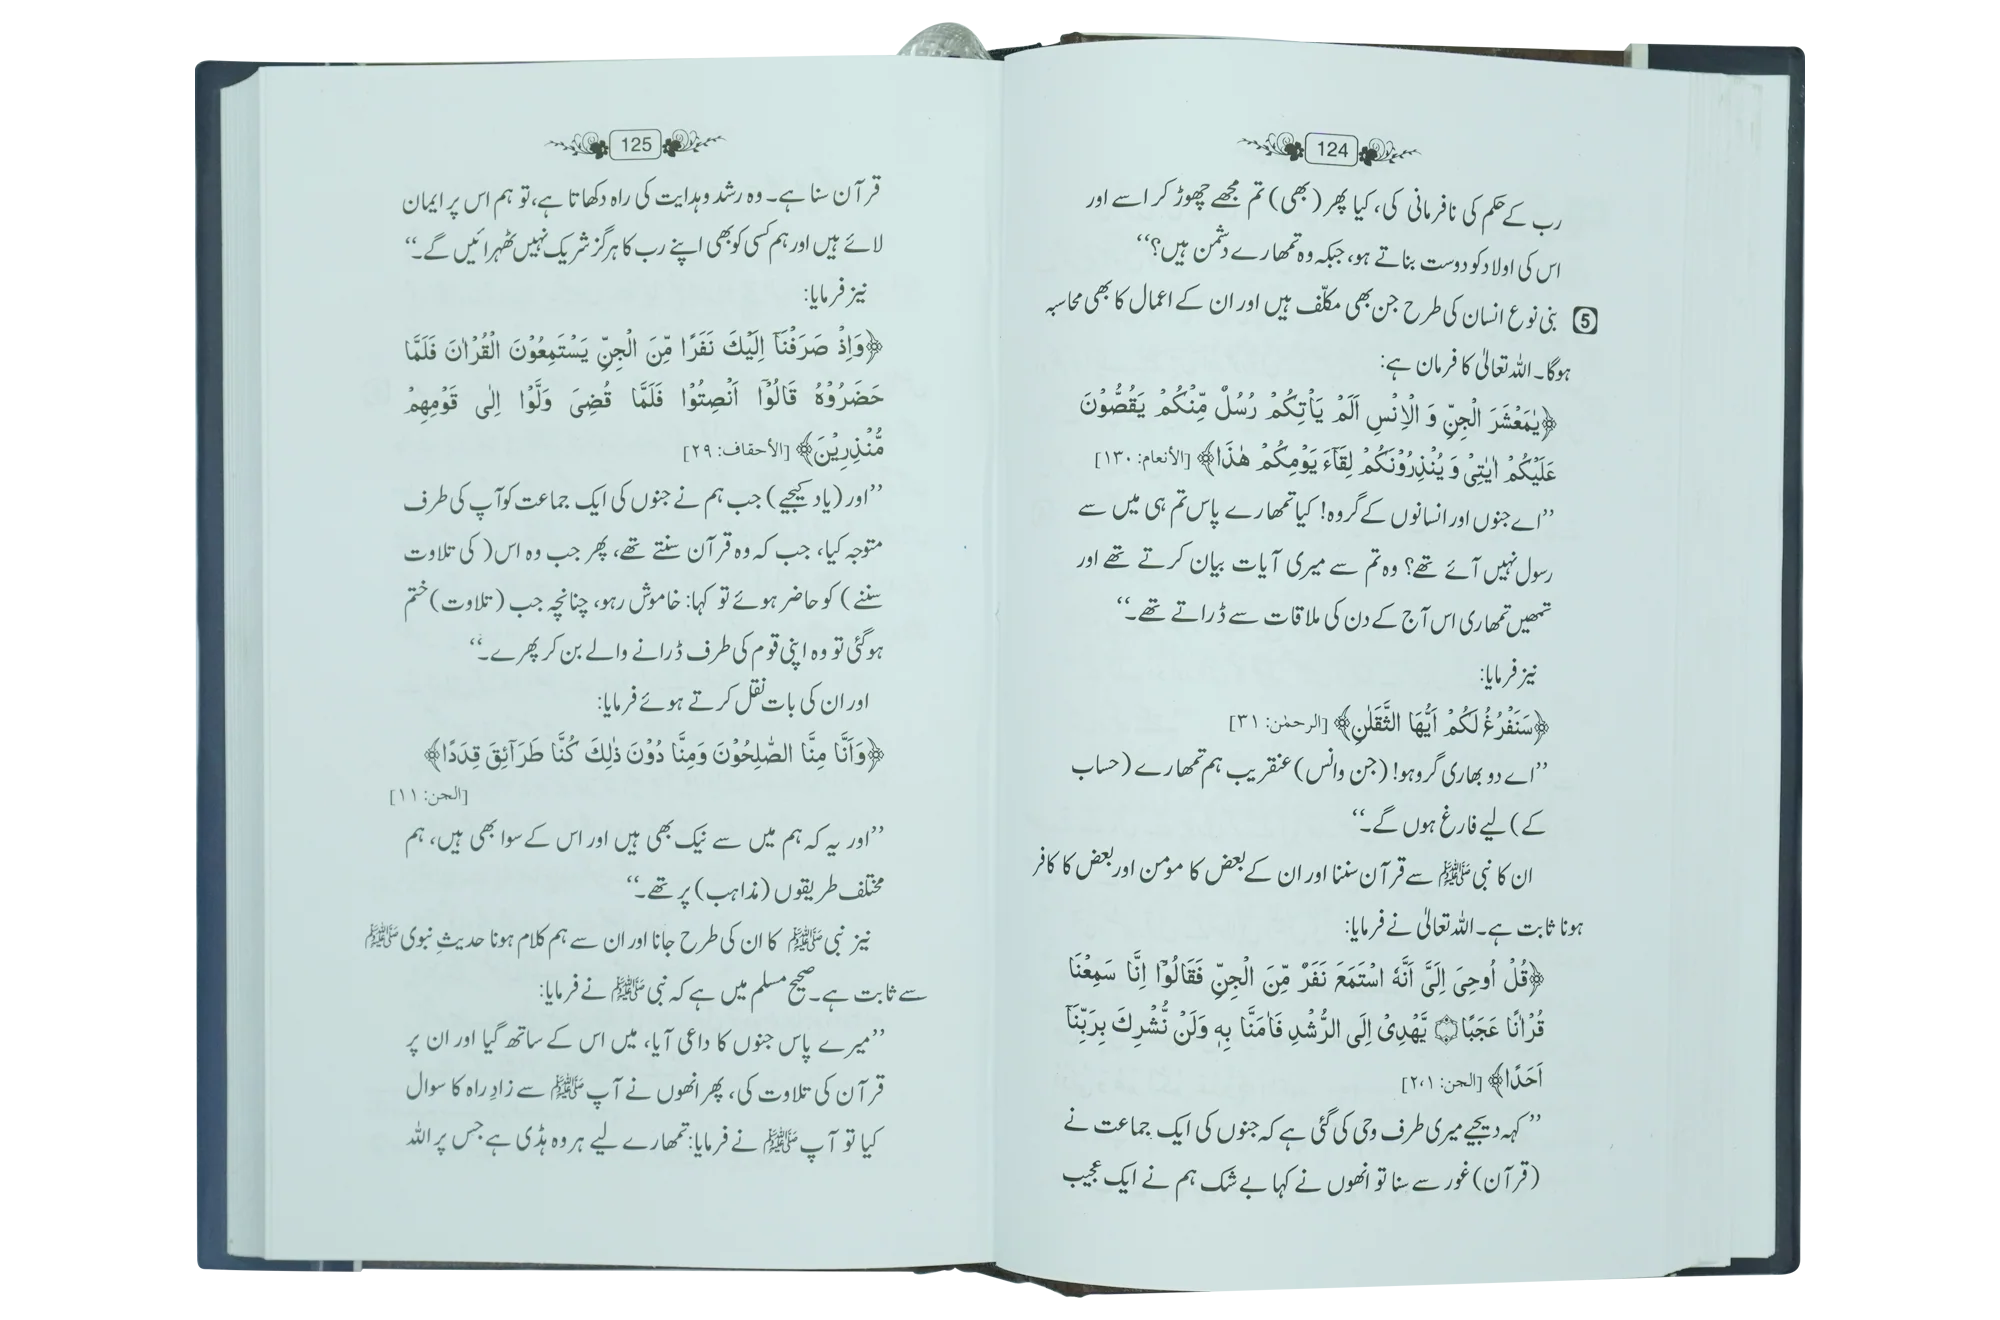 124
رب کے حکم کی نافرمانی کی، کیا پھر (بھی) تم مجھے چھوڑ کر اسے اور
اس کی اولاد کو دوست بناتے ہو، جبکہ وہ تمھارے دشمن ہیں؟‘‘
5 بنی نوع انسان کی طرح جن بھی مکلّف ہیں اور ان کے اعمال کا بھی محاسبہ
ہوگا۔ اللہ تعالیٰ کا فرمان ہے:
﴿يٰمَعْشَرَ الْجِنِّ وَ الْاِنْسِ اَلَمْ يَاْتِكُمْ رُسُلٌ مِّنْكُمْ يَقُصُّوْنَ
عَلَيْكُمْ اٰيٰتِيْ وَ يُنْذِرُوْنَكُمْ لِقَآءَ يَوْمِكُمْ هٰذَا﴾ [الأنعام: ١٣٠]
’’اے جنوں اور انسانوں کے گروہ! کیا تمھارے پاس تم ہی میں سے
رسول نہیں آئے تھے؟ وہ تم سے میری آیات بیان کرتے تھے اور
تمھیں تمھاری اس آج کے دن کی ملاقات سے ڈراتے تھے۔‘‘
نیز فرمایا:
﴿سَنَفْرُغُ لَكُمْ اَيُّهَ الثَّقَلٰنِ﴾ [الرحمٰن: ٣١]
’’اے دو بھاری گروہو! (جن وانس) عنقریب ہم تمھارے (حساب
کے) لیے فارغ ہوں گے۔‘‘
ان کا نبی ﷺ سے قرآن سننا اور ان کے بعض کا مومن اور بعض کا کافر
ہونا ثابت ہے۔ اللہ تعالیٰ نے فرمایا:
﴿قُلْ اُوْحِيَ اِلَيَّ اَنَّهُ اسْتَمَعَ نَفَرٌ مِّنَ الْجِنِّ فَقَالُوْٓا اِنَّا سَمِعْنَا
قُرْاٰنًا عَجَبًا ۝ يَّهْدِيْٓ اِلَى الرُّشْدِ فَاٰمَنَّا بِهٖ وَلَنْ نُّشْرِكَ بِرَبِّنَآ
اَحَدًا﴾ [الجن: ٢،١]
’’کہہ دیجیے میری طرف وحی کی گئی ہے کہ جنوں کی ایک جماعت نے
(قرآن) غور سے سنا تو انھوں نے کہا بے شک ہم نے ایک عجیب
125
قرآن سنا ہے۔ وہ رشد وہدایت کی راہ دکھاتا ہے، تو ہم اس پر ایمان
لائے ہیں اور ہم کسی کو بھی اپنے رب کا ہرگز شریک نہیں ٹھہرائیں گے۔‘‘
نیز فرمایا:
﴿وَاِذْ صَرَفْنَآ اِلَيْكَ نَفَرًا مِّنَ الْجِنِّ يَسْتَمِعُوْنَ الْقُرْاٰنَ فَلَمَّا
حَضَرُوْهُ قَالُوْٓا اَنْصِتُوْا فَلَمَّا قُضِيَ وَلَّوْا اِلٰى قَوْمِهِمْ
مُّنْذِرِيْنَ﴾ [الأحقاف: ٢٩]
’’اور (یاد کیجیے) جب ہم نے جنوں کی ایک جماعت کو آپ کی طرف
متوجہ کیا، جب کہ وہ قرآن سنتے تھے، پھر جب وہ اس( کی تلاوت
سننے) کو حاضر ہوئے تو کہا: خاموش رہو، چنانچہ جب (تلاوت) ختم
ہوگئی تو وہ اپنی قوم کی طرف ڈرانے والے بن کر پھرے۔‘‘
اور ان کی بات نقل کرتے ہوئے فرمایا:
﴿وَاَنَّا مِنَّا الصّٰلِحُوْنَ وَمِنَّا دُوْنَ ذٰلِكَ كُنَّا طَرَآئِقَ قِدَدًا﴾
[الجن: ١١]
’’اور یہ کہ ہم میں سے نیک بھی ہیں اور اس کے سوا بھی ہیں، ہم
مختلف طریقوں (مذاہب) پر تھے۔‘‘
نیز نبی ﷺ کا ان کی طرح جانا اور ان سے ہم کلام ہونا حدیثِ نبوی ﷺ
سے ثابت ہے۔ صحیح مسلم میں ہے کہ نبی ﷺ نے فرمایا:
’’میرے پاس جنوں کا داعی آیا، میں اس کے ساتھ گیا اور ان پر
قرآن کی تلاوت کی، پھر انھوں نے آپ ﷺ سے زادِ راہ کا سوال
کیا تو آپ ﷺ نے فرمایا: تمھارے لیے ہر وہ ہڈی ہے جس پر اللہ